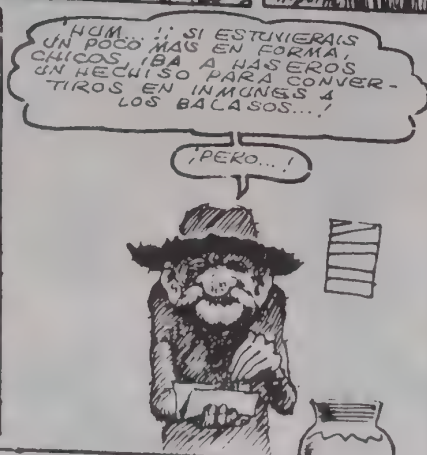 ¡HUM...!¡ SI ESTUVIERAIS
UN POCO MAS EN FORMA,
CHICOS, IBA A HASEROS
UN HECHISO PARA CONVER-
TIROS EN INMUNES A
LOS BALASOS...!
¡PERO...!